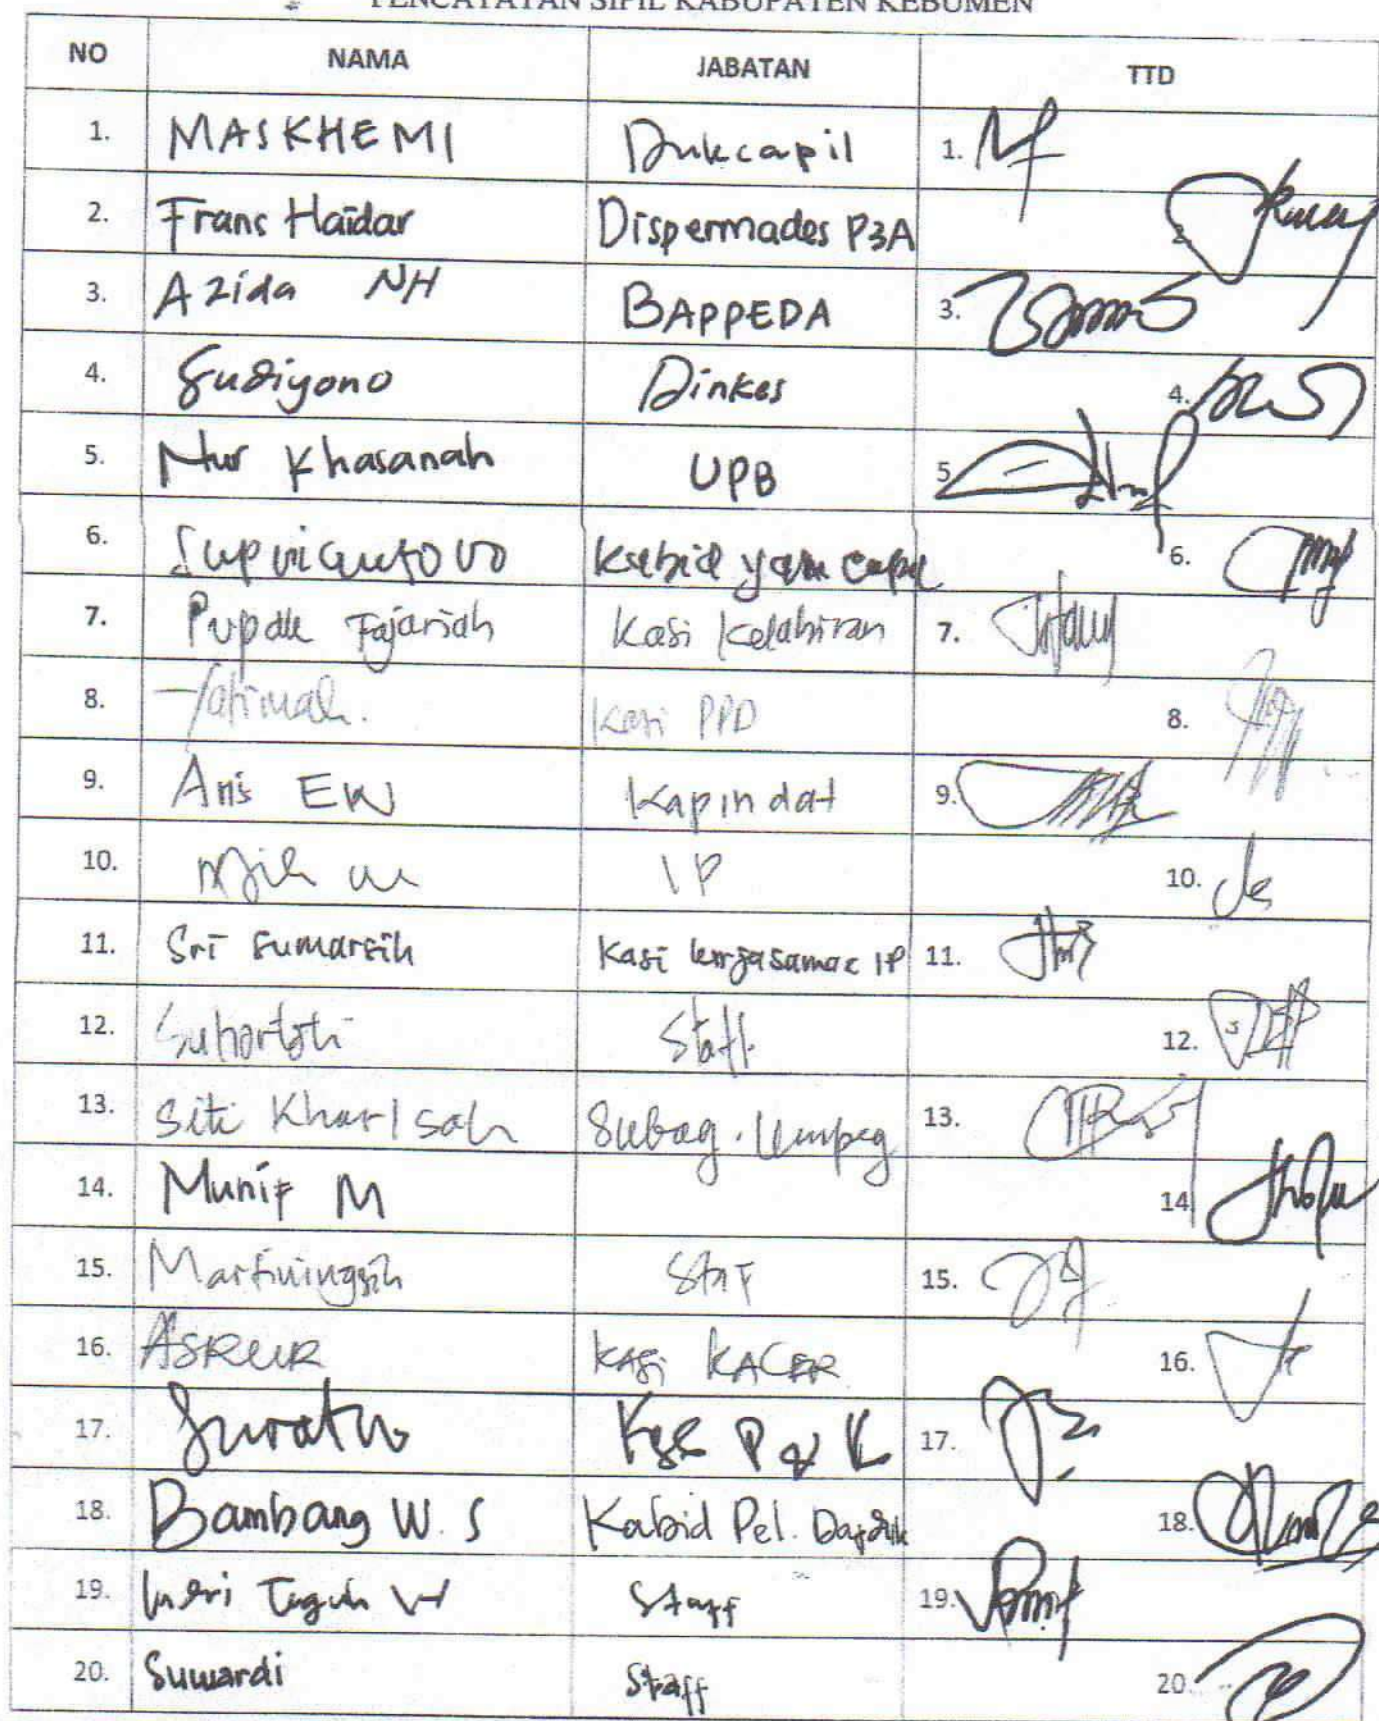 PENCATATAN SIPIL KABUPATEN KEBUMEN
NO NAMA JABATAN TTD
1. MASKHEMI Dukcapil 1.
2. Frans Haidar Dispermades P3A 2.
3. Azida NH BAPPEDA 3.
4. Sudiyono Dinkes 4.
5. Nur Khasanah UPB 5.
6. Kabid 6.
7. Fajariah Kasi Kelahiran 7.
8. Fatimah. Kasi PPD 8.
9. Anis EW Kapindat 9.
10. IP 10.
11. Sri Sumarsih Kasi kerjasama IP 11.
12. Suhartoti Staff 12.
13. Siti Kharisah Subag. Umpeg 13.
14. Munif M 14.
15. Martiningsih Staf 15.
16. ASRUR KASi KACER 16.
17. P & K 17.
18. Bambang W. S Kabid Pel. Dafduk 18.
19. Teguh W Staff 19.
20. Suwardi Staff 20.